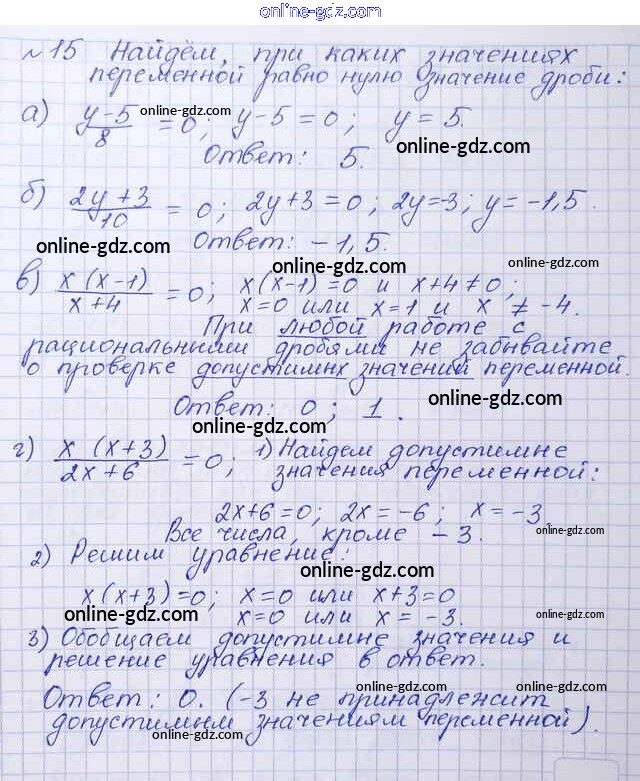 online-gdz.com
№15 Найдём, при каких значениях
переменной равно нулю значение дроби:
а) y-5/8 = 0; y-5=0; y=5. online-gdz.com
online-gdz.com
Ответ: 5. online-gdz.com
б) 2y+3/10 = 0; 2y+3=0; 2y=-3; y=-1,5.
online-gdz.com Ответ: -1,5. online-gdz.com
online-gdz.com
в) x(x-1)/x+4 = 0; x(x-1)=0 и x+4≠0;
x=0 или x=1 и x ≠ -4.
При любой работе с
рациональными дробями не забывайте
о проверке допустимнх значений переменной.
Ответ: 0; 1. online-gdz.com
online-gdz.com
г) x (x+3)/2x+6 = 0; 1) Найдем допустимне
значения переменной:
2x+6=0; 2x=-6; x=-3. online-gdz.com
Все числа, кроме -3.
2) Решим уравнение:
online-gdz.com
x(x+3)=0; x=0 или x+3=0
online-gdz.com x=0 или x=-3. online-gdz.com
3) Обобщаем допустимне значения и
решение уравнения в ответ.
online-gdz.com online-gdz.com
Ответ: 0. (-3 не принадленсит
допустимым значениям переменной).
online-gdz.com online-gdz.com